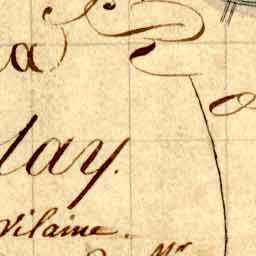 a
lay.
Vilaine.
Mr